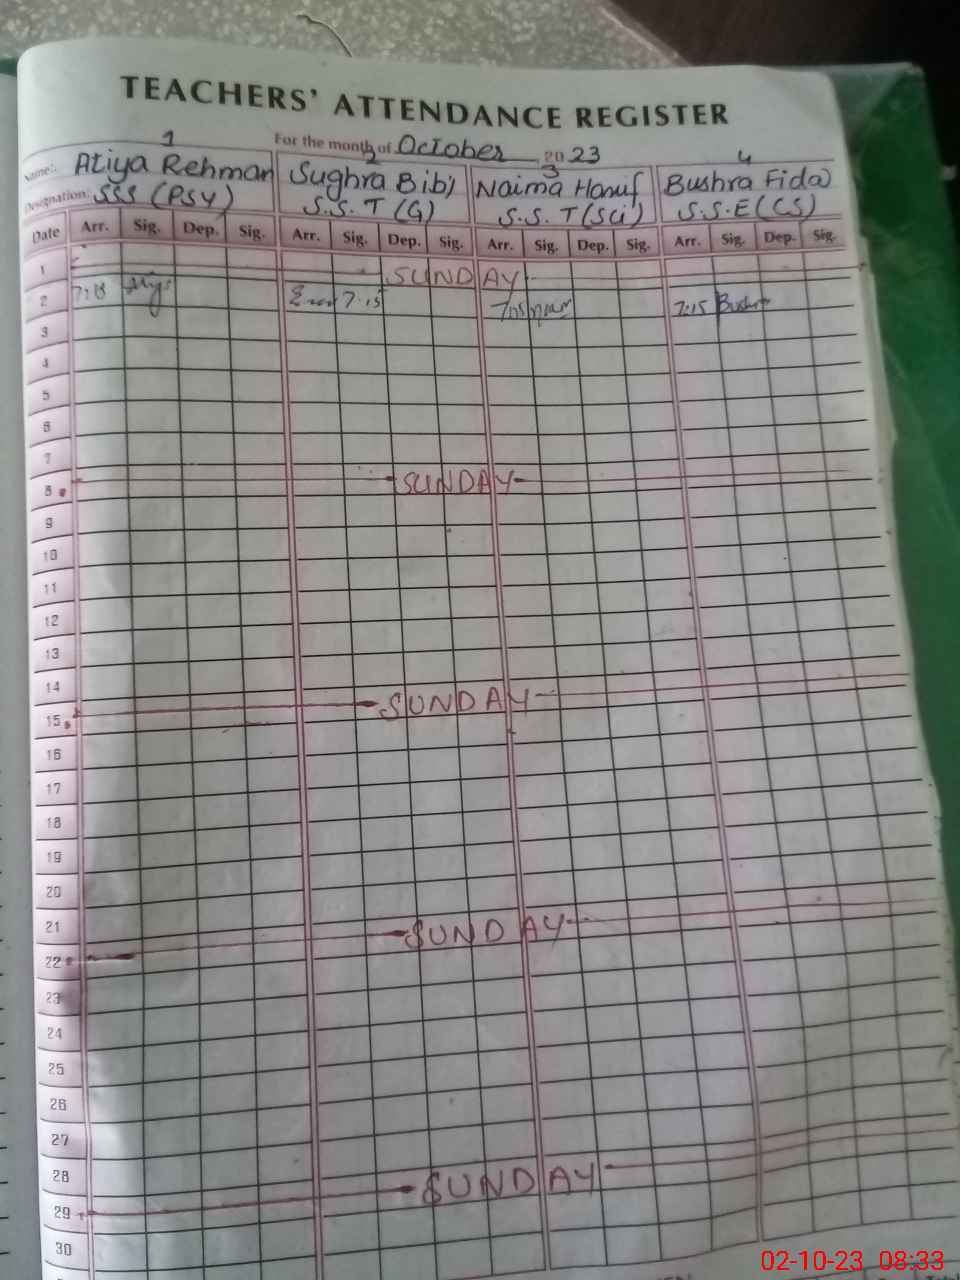 TEACHERS' ATTENDANCE REGISTER
For the month of October 2023
1 2 3 4
Name: Atiya Rehman Sughra Bibi Naima Hanif Bushra Fida
Designation: SSS (PSY) S.S.T (G) S.S.T (Sci) S.S.E (CS)
Date Arr. Sig. Dep. Sig. Arr. Sig. Dep. Sig. Arr. Sig. Dep. Sig. Arr. Sig. Dep. Sig.
1 SUNDAY
2 7:15 7:15 Bushra
3
4
5
6
7
8 SUNDAY
9
10
11
12
13
14
15 SUNDAY
16
17
18
19
20
21
22 SUNDAY
23
24
25
26
27
28
29 SUNDAY
30
02-10-23 08:33